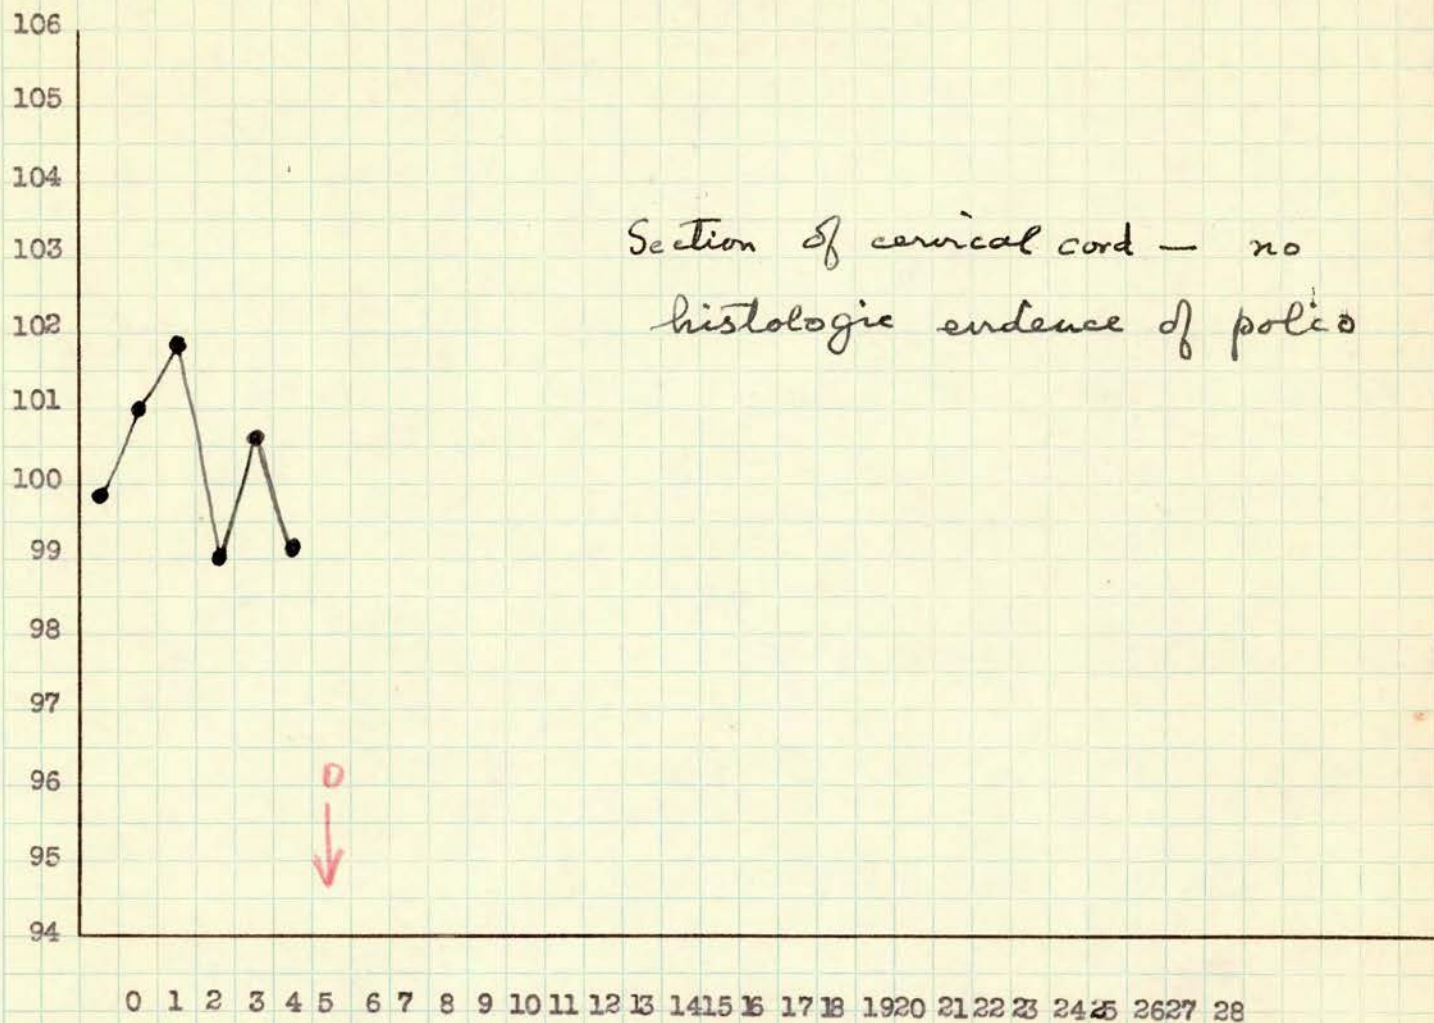 106
105
104
103
102
101
100
99
98
97
96
95
94
Section of cervical cord — no
histologic evidence of polio
D
0 1 2 3 4 5 6 7 8 9 10 11 12 13 14 15 16 17 18 19 20 21 22 23 24 25 26 27 28